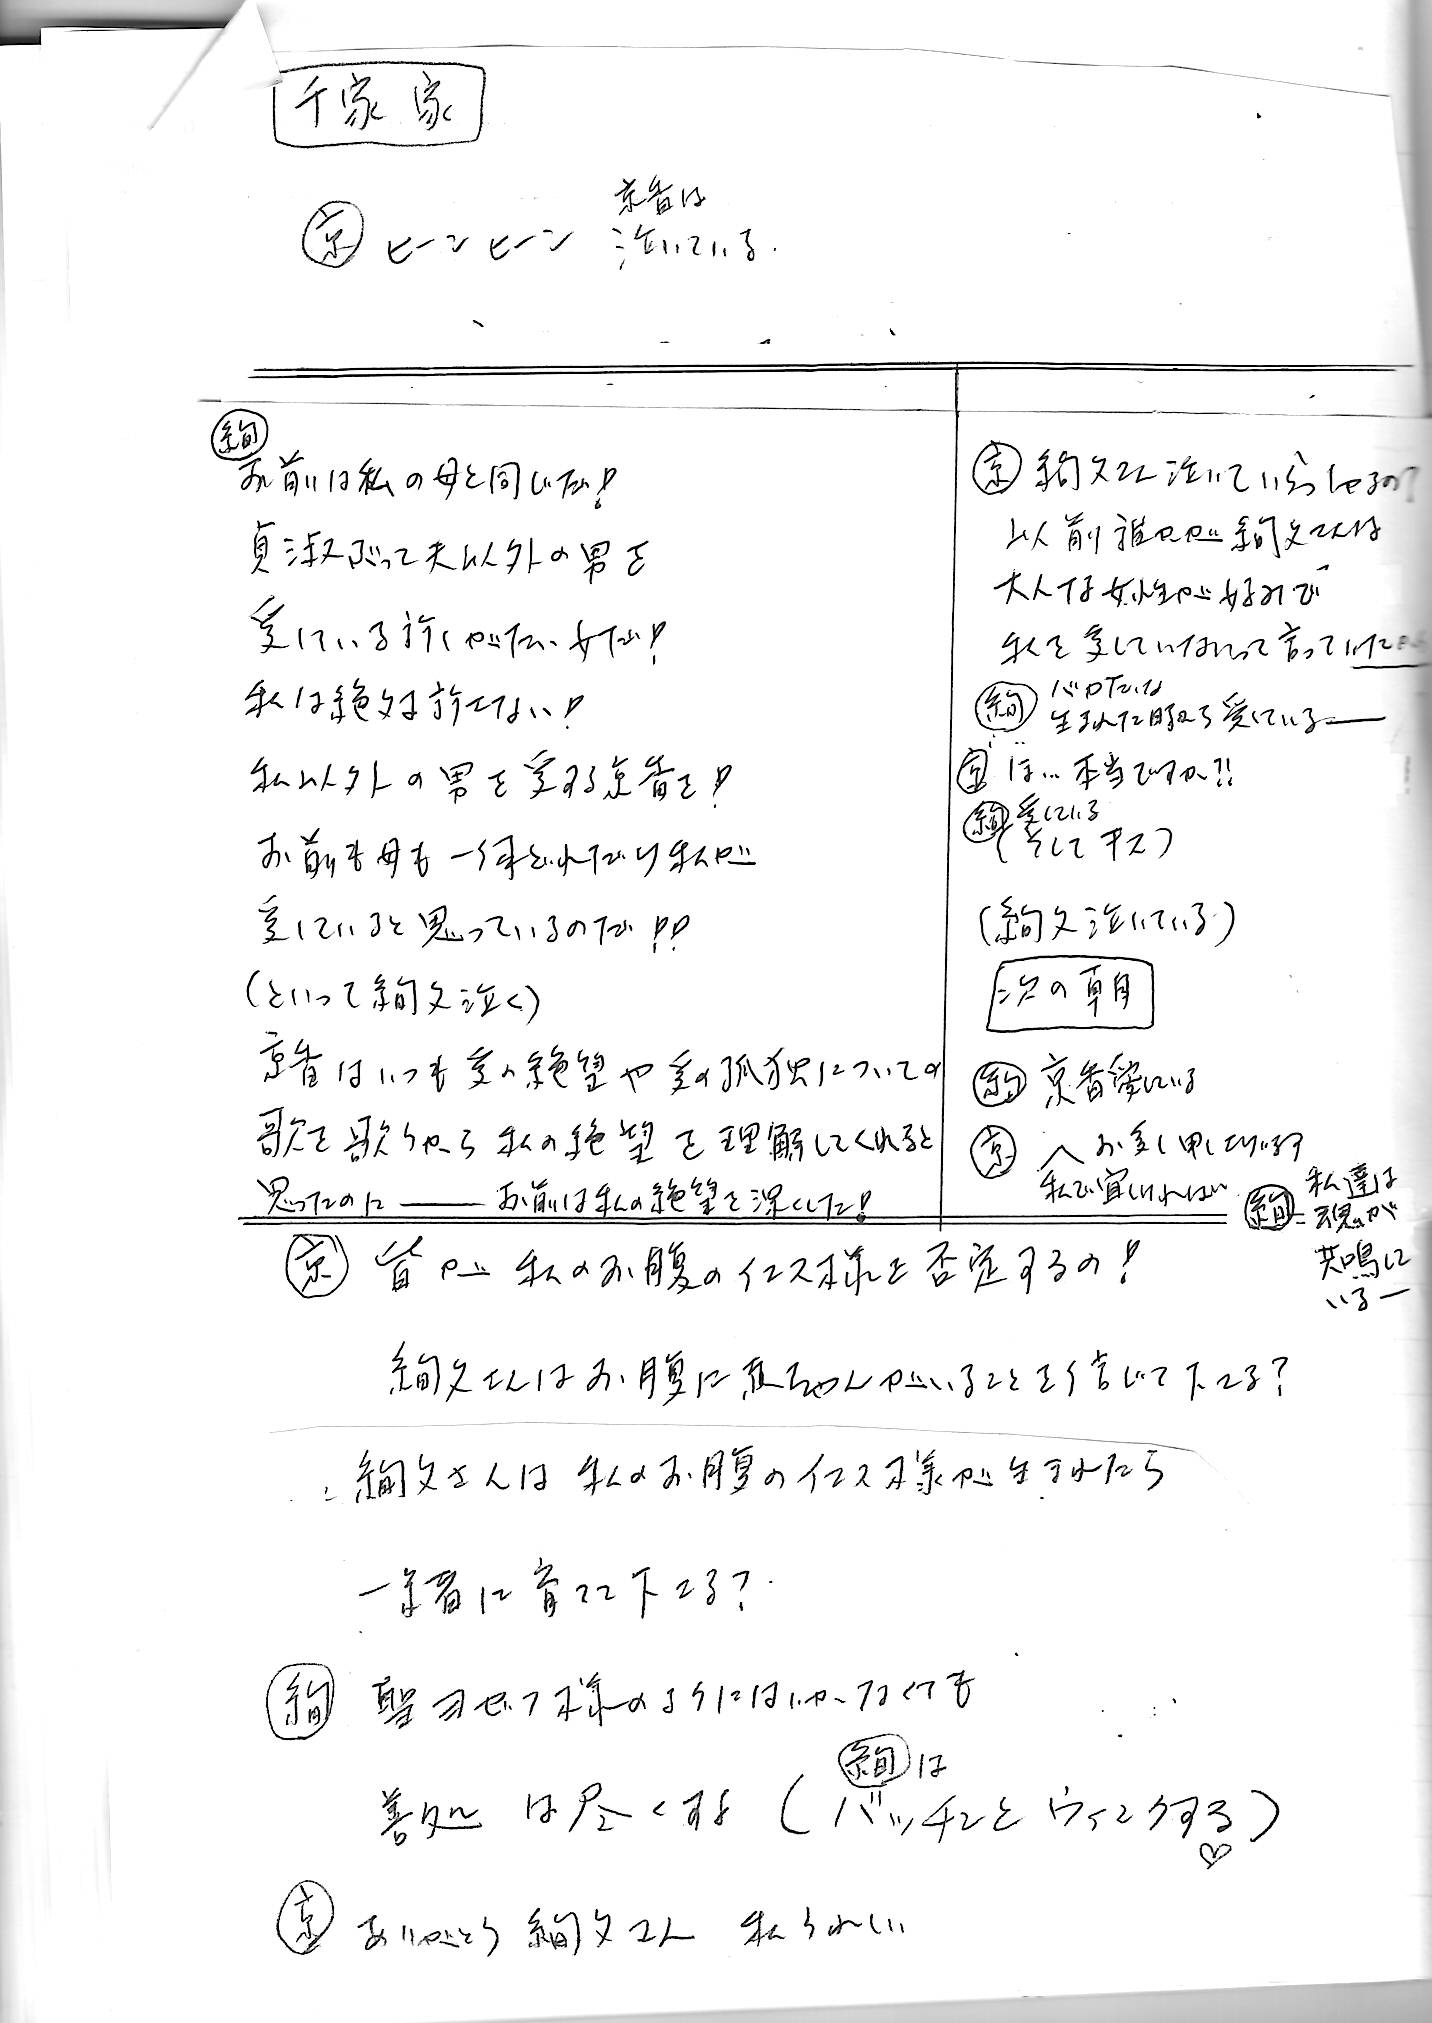 千家家
京 ヒーンヒーン 京香は
泣いている.
絢
お前は私の母と同じだ!
貞淑ぶって夫以外の男を
愛している許しがたい女だ!
私は絶対許さない!
私以外の男を愛する京香を!
お前も母も一体どれだけ私が
愛していると思っているのだ!!
(といって絢文泣く)
京香はいつも愛の絶望や愛の孤独についての
歌を歌うから私の絶望を理解してくれると
思ったのに――お前は私の絶望を深くした!
京 絢文さん泣いていらっしゃるの?
以前誰かが絢文さんは
大人な女性が好みで
私を愛していないって言っていた
絢 バカだな
生まれた時から愛している――
京 ほ…本当ですか!!
絢 愛している
(そしてキス)
(絢文泣いている)
次の朝
絢 京香愛している
京 お愛し申し上げます
私で宜しければ
絢 私達は
魂が
共鳴して
いるー
京 皆が私のお腹のイエス様を否定するの!
絢文さんはお腹に赤ちゃんがいることを信じて下さる?
絢文さんは私のお腹のイエス様が生まれたら
一緒に育てて下さる?
絢 聖ヨゼフ様のようにはいかなくても
善処は尽くすよ (絢は
バッチンとウィンクする♡)
京 ありがとう絢文さん 私うれしい